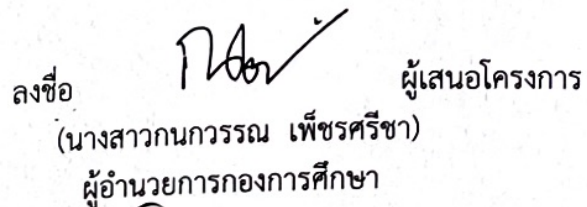 ลงชื่อ ผู้เสนอโครงการ
(นางสาวกนกวรรณ เพ็ชรศรีชา)
ผู้อำนวยการกองการศึกษา